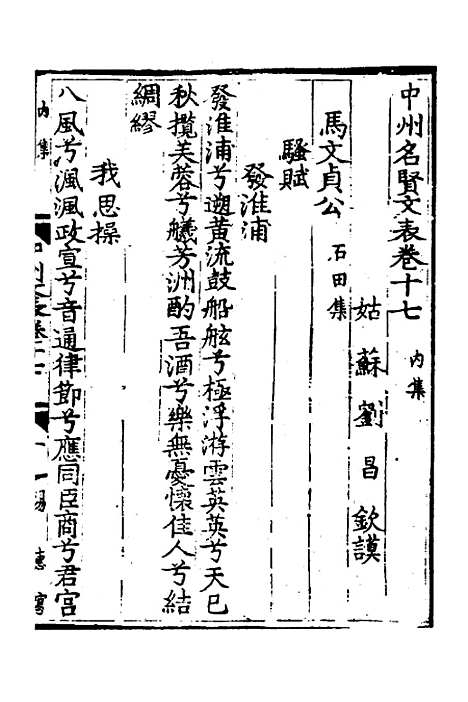 中州名賢文表卷十七　內集
姑蘇劉昌欽謨
馬文貞公　石田集
騷賦
發淮浦
發淮浦兮遡黃流鼓船舷兮極浮游雲英英兮天已
秋攬芙蓉兮艤芳洲酌吾酒兮樂無憂懷佳人兮結
綢繆
我思操
八風兮渢渢政宣兮音通律節兮應同臣商兮君宮
內集